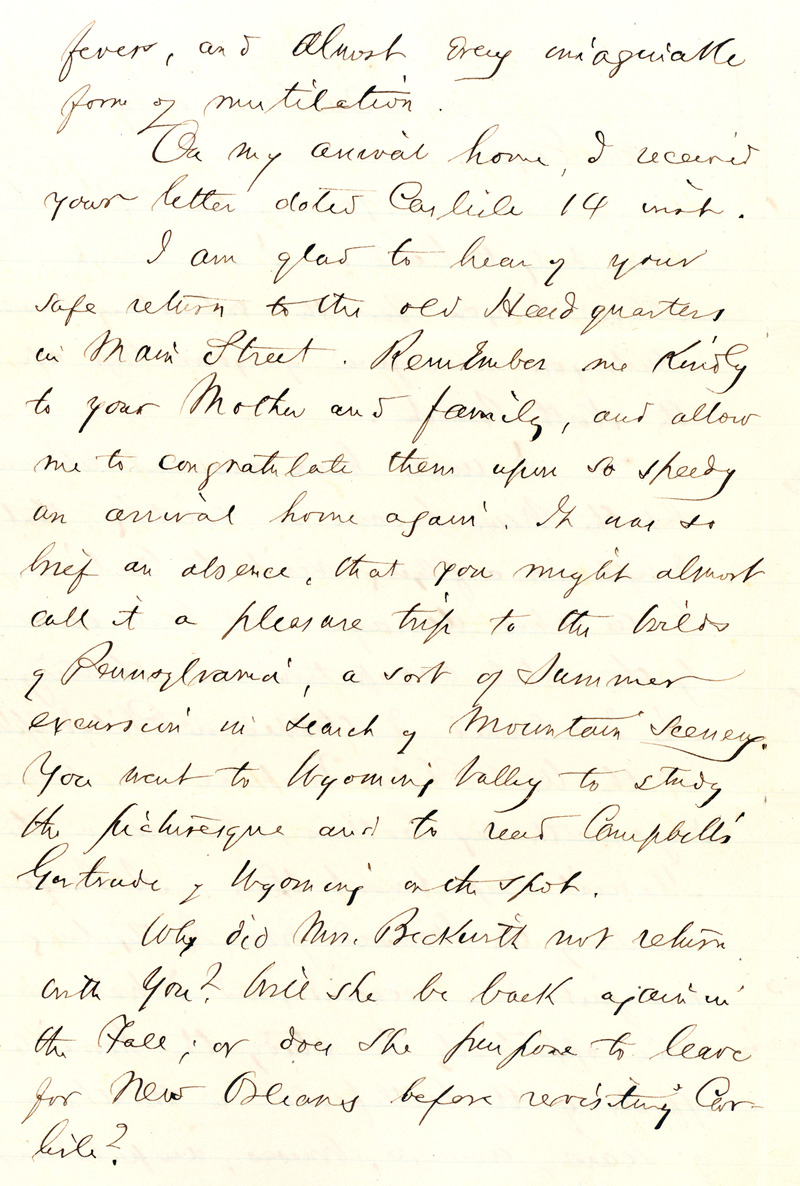 fever, and almost every imaginable
form of mutilation.
On my arrival home, I received
your letter dated Carlisle 14 inst.
I am glad to hear of your
safe return to the old Headquarters
in Main Street. Remember me Kindly
to your Mother and family, and allow
me to congratulate them upon so speedy
an arrival home again. It was so
brief an absence, that you might almost
call it a pleasure trip to the wilds
of Pennsylvania, a sort of Summer
excursion in search of Mountain Scenery.
You went to Wyoming Valley to study
the picturesque and to read Campbell's
Gertrude of Wyoming on the spot.
Why did Mrs. Beckwith not return
with You? Will she be back again in
the Fall; or does she purpose to leave
for New Orleans before revisiting Car-
lisle?